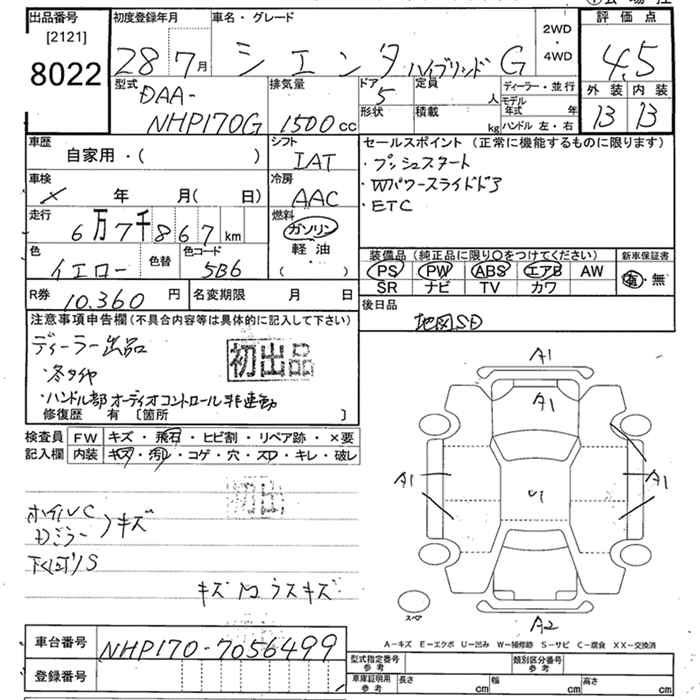 出品番号
[2121]
8022
初度登録年月
28 7月
車名・グレード
シエンタ ハイブリッド G
2WD
・
4WD
評価点
4.5
型式
DAA-
NHP170G
排気量
1500cc
ドア
5
形状
定員
人
積載
kg
ディーラー・並行
モデル年式 年
ハンドル 左・右
外装 内装
13 13
車歴
自家用・( )
シフト
IAT
車検
× 年 月( 日)
冷房
AAC
走行
6万7千867km
燃料
ガソリン
・
軽油
・
( )
色
イエロー
色替
色コード
5B6
R券
10.360円
名変期限 月 日
セールスポイント(正常に機能するものに限ります)
・プッシュスタート
・Wパワースライドドア
・ETC
装備品(純正品に限り〇をつけてください)
PS PW ABS エアB AW
SR ナビ TV カワ
新車保証書
有・無
後日品
地図SD
注意事項申告欄(不具合内容等は具体的に記入して下さい)
ディーラー出品
初出品
・冬タイヤ
・ハンドル部オーディオコントロール非連動
修復歴 有 〔箇所 〕
検査員
記入欄
FW キズ・飛石・ヒビ割・リペア跡・×要
内装 キズ・汚れ・コゲ・穴・スレ・キレ・破レ
初出
ホイルC
ドミラー 〉キズ
下回りS
キズ 凹 ウスキズ
A1
A1
A1
A1
U1
A2
スペア
A-キズ E-エクボ U-凹み W-補修跡 S-サビ C-腐食 XX-交換済
車台番号
NHP170-7056499
登録番号
型式指定番号
参考
類別区分番号
参考
車庫証明用
参考
長さ cm
幅 cm
高さ cm